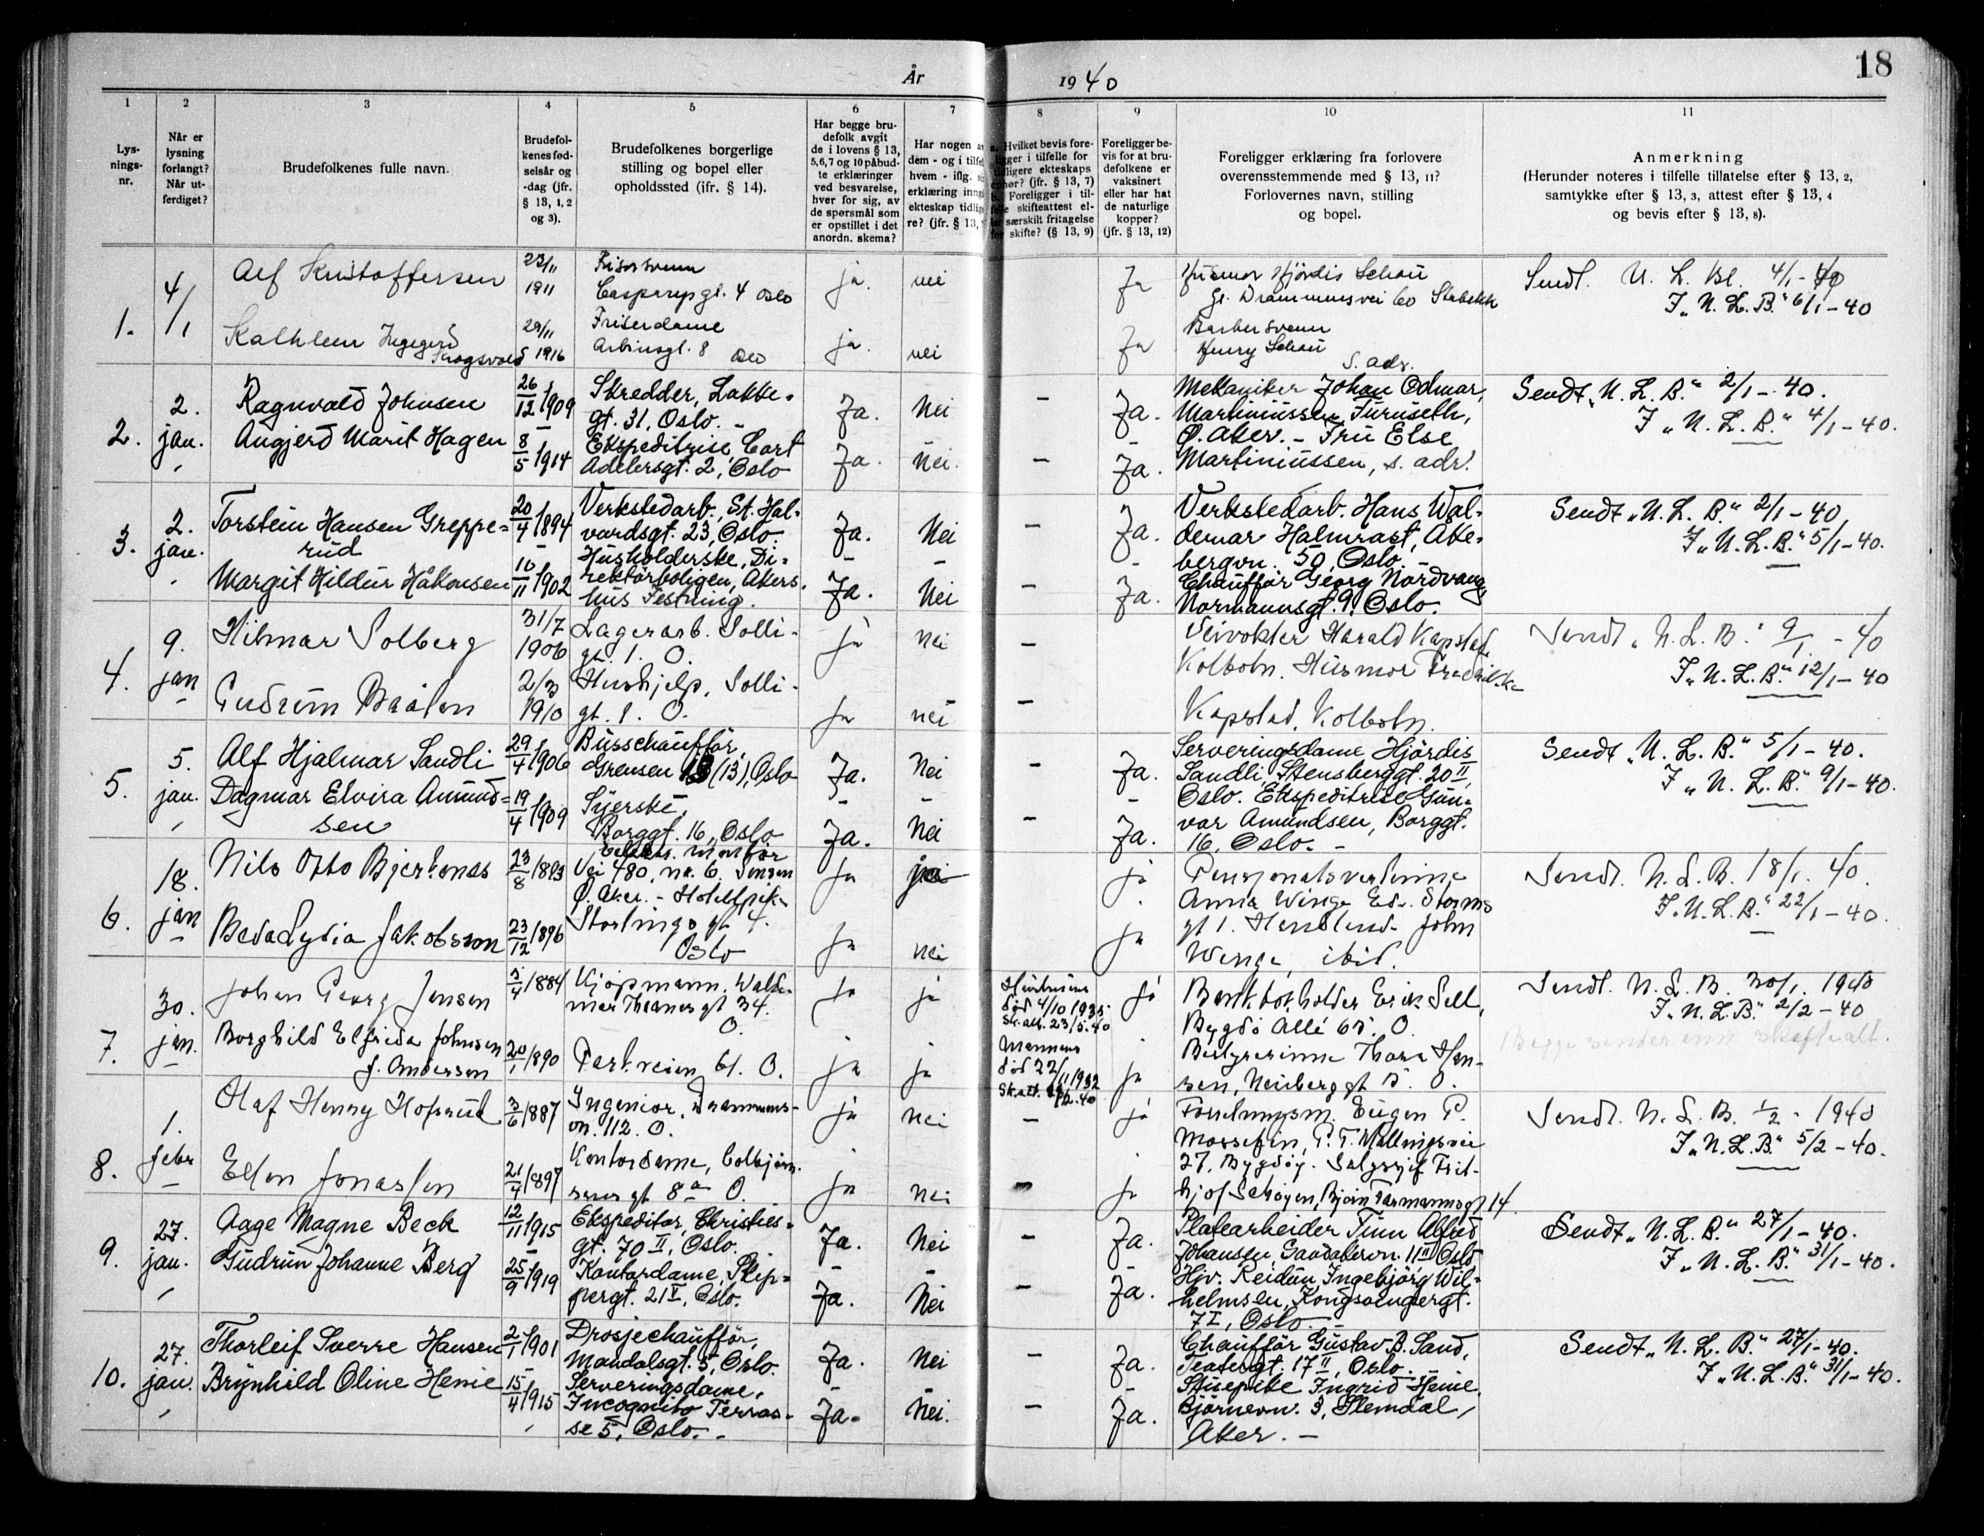 År 1940
18
1 2 3 4 5 6 7 8 9 10 11
Lys-
nings-
nr.
Når er
lysning
forlangt?
Når ut-
ferdiget?
Brudefolkenes fulle navn.
Brudefol-
kenes fød-
selsår og
-dag (jfr.
§ 13, 1, 2
og 3).
Brudefolkenes borgerlige
stilling og bopel eller
opholdssted (ifr. § 14).
Har begge bru-
defolk avgit
de i lovens § 13,
5,6,7 og 10 påbud-
te erklæringer
ved besvarelse,
hver for sig, av
de spørsmål som
er opstillet i det
anordn. skema?
Har nogen
dem - og i tilfel
hvem - iflg.
erklæring inng
ekteskap tidlig
re? (jfr. § 13,
a. Hvilket bevis fore-
ligger i tilfelle for
tidligere ekteskaps
ophør? (jfr. § 13, 7)
b. Foreligger i til-
felle skifteattest el-
ler særskilt fritagelse
for skifte? (§ 13, 9)
Foreligger be-
vis for at bru-
defolkene er
vaksinert
eller har hat
de naturlige
kopper?
(jfr. § 13, 12)
Foreligger erklæring fra forlovere
overensstemmende med § 13, 11?
Forlovernes navn, stilling
og bopel.
Anmerkning
(Herunder noteres i tilfelle tillatelse efter § 13, 2,
samtykke efter § 13, 3, attest efter § 13, 4
og bevis efter § 13, 8).
1.
4/1
Alf Kristoffersen
23/11
1911
Frisørsvenn
gt. 4 Oslo
ja.
nei
Ja
Husmor Hjördis Schau
Gl. Drammensvei 60 Stabekk
Sendt. N. L. Bl. 4/1-40
I „N. L. B." 6/1-40
Kathleen Ingegerd
Skogsvold
29/5 1916
Friserdame
Arbinsgt. 8 Oslo
ja.
nei
Ja
Barbersvenn
Henry Schau
s. adr.
2.
2.
jan.
Ragnvald Johnsen
26/12 1909
Skredder, Lakke-
gt. 31, Oslo. -
Ja.
Nei
-
Ja.
Mekaniker Johan Odmar
Martiniussen, Furuseth,
Ö. Aker. - Fru Else
Martiniussen, s. adr.
Sendt „N. L. B." 2/1-40.
I „N. L. B." 4/1-40.
Angjerd Marit Hagen
8/5 1914
Ekspeditrise, Cort
Adelersgt. 2, Oslo
Ja.
Nei.
-
Ja.
3.
2.
jan.
Torstein Hansen Greppe-
rud
20/4 1894
Verkstedarb., St. Hal-
vardsgt. 23, Oslo
Ja.
Nei
-
Ja.
Verkstedarb. Hans Wal-
demar Halmrast, Ake-
bergvn. 50, Oslo. -
Chauffør Georg Nordvang
Normannsgt. 9, Oslo.
Sendt „N. L. B." 2/1-40
I „N. L. B." 5/1-40.
Margit Hildur Håkonsen
10/11 1902
Husholderske, Di-
rektörboligen, Akers-
hus Festning.
Ja.
Nei
-
Ja.
4.
9.
jan
Hilmar Solberg
31/7
1906
Lagerarb. Solli-
gt. 1. O.
ja
nei
-
Veivokter Harald Kapstad
Kolbotn. Husmor Fredrikke
Kapstad, Kolbotn.
Sendt „N. L. B." 9/1-40
I „N. L. B." 12/1-40
Gudrun Braaten
2/3
1910
Hushjelp, Solli-
gt. 1. O.
ja
nei
-
5.
5.
jan.
Alf Hjalmar Sandli
29/4 1906
Busschauffør,
Grensen 13 (13), Oslo
Ja.
Nei
-
Ja.
Serveringsdame Hjördis
Sandli, Stensberggt. 20 II,
Oslo. Ekspeditrise Gun-
vor Amundsen, Borggt.
16, Oslo. -
Sendt „N. L. B." 5/1-40.
I „N. L. B." 9/1-40.
Dagmar Elvira Amund-
sen
19/4 1909
Syerske
Borggt. 16, Oslo
Ja.
Nei
-
Ja.
6.
18.
jan
Nils Otto Bjerkenås
23/8 1893
Elektr. montør
Vei 480, nr. 6.
Ø. Aker. - Hotellpik-
ja
ja
Pensjonatsvertinne
Anna Winge Ed. Storms
gt 1. John
Winge, ibid.
Sendt. N. L. B. 18/1. 40.
I „N. L. B." 22/1-40.
Beda Lydia Jakobsson
23/12 1896
Stortings gt 4.
Oslo
ja
nei
ja
7.
30.
jan.
Johan Georg Jensen
4 1884
Kjøpmann, Walde-
mar Thranes gt 34.
O.
ja
ja
Hustruen
død 4/10 1935
Sk.att. 23/5.40
ja
Bankbokholder Erik Sell,
Bygdø Allé 65. O.
Bestyrerinne Thora Han-
sen, Neuberggt 15. O.
Sendt. N. L. B. 30/1. 1940
I „N. L. B." 2/2-40
Begge sender inn skifteatt.
Borghild Elfrida Johnsen
f. Andersen
20/1 1890
Parkveien 61. O.
ja
ja
Mannens
død 22/11 1932
Sk.att.
ja
8.
1.
febr
Olaf Henry Hofsrud
3/6 1887
Ingeniør, Drammens-
vn. 112. O.
ja
nei
-
ja
Forretningsm. Eugen P.
Mossefin, P. T. Mallingsvei
27, Bygdøy. Salgssjef Frit-
hjof Schøyen, Bjørn Farmannsgt 14.
Sendt. N. L. B. 1/2. 1940
I „N. L. B." 5/2-40.
Ellen Jonassen
21/4 1897
Kontordame, Colbjørn-
sens gt 8a O.
ja
nei
-
ja
9.
27.
jan.
Aage Magne Beck
12/11 1915
Ekspeditør, Christies-
gt. 70 II, Oslo.
Ja.
Nei
-
Ja.
Platearbeider Finn Alfred
Johansen, Sandakervn. 11 II Oslo
Hjv. Reidun Ingebjörg Wil-
helmsen, Kongsvingergt.
7 I, Oslo. -
Sendt „N. L. B." 27/1-40.
I „N. L. B." 31/1-40.
Gudrun Johanne Berg
25/9 1919
Kontordame, Skip-
pergt. 21 V, Oslo.
Ja.
Nei
-
Ja.
10.
27.
jan.
Thorleif Sverre Hansen
2/1 1901
Drosjechauffør,
Mandalsgt. 5, Oslo.
Ja.
Nei
-
Ja.
Chauffør Gustav B. Sand,
Teatergt. 17 II, Oslo.
Stuepike Ingrid Henie
Björnevn. 3, Slemdal,
Aker. -
Sendt „N. L. B." 27/1-40.
I „N. L. B." 31/1-40.
Brynhild Oline Henie
15/4 1915
Serveringsdame,
Incognito Terras-
se 5, Oslo. -
Ja.
Nei.
-
Ja.